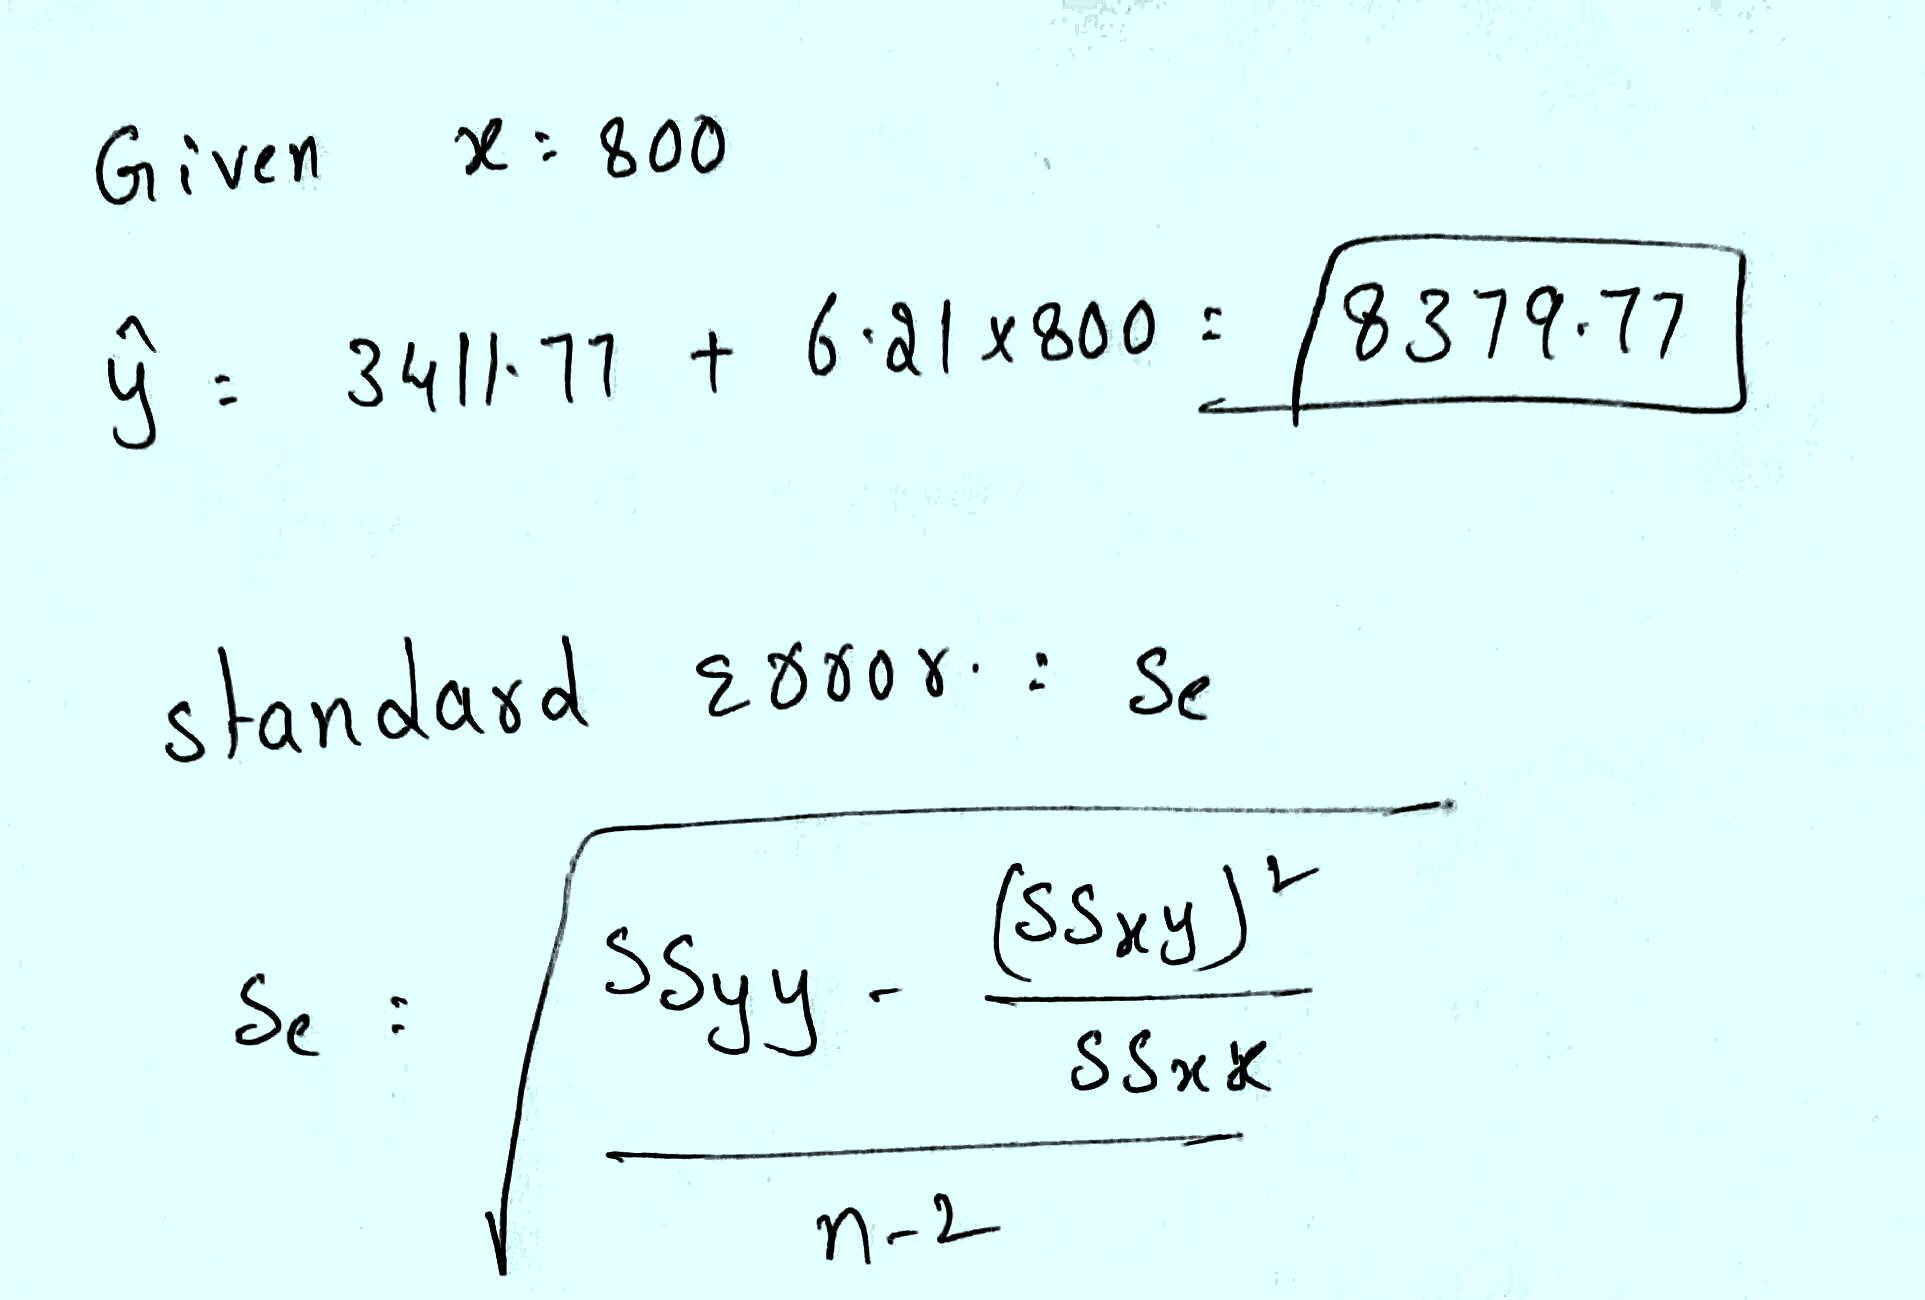 Given x = 800
ŷ = 3411.77 + 6.21 x 800 = 8379.77
standard error. = Se
Se = √((SSyy - (SSxy)² / SSxx) / (n-2))